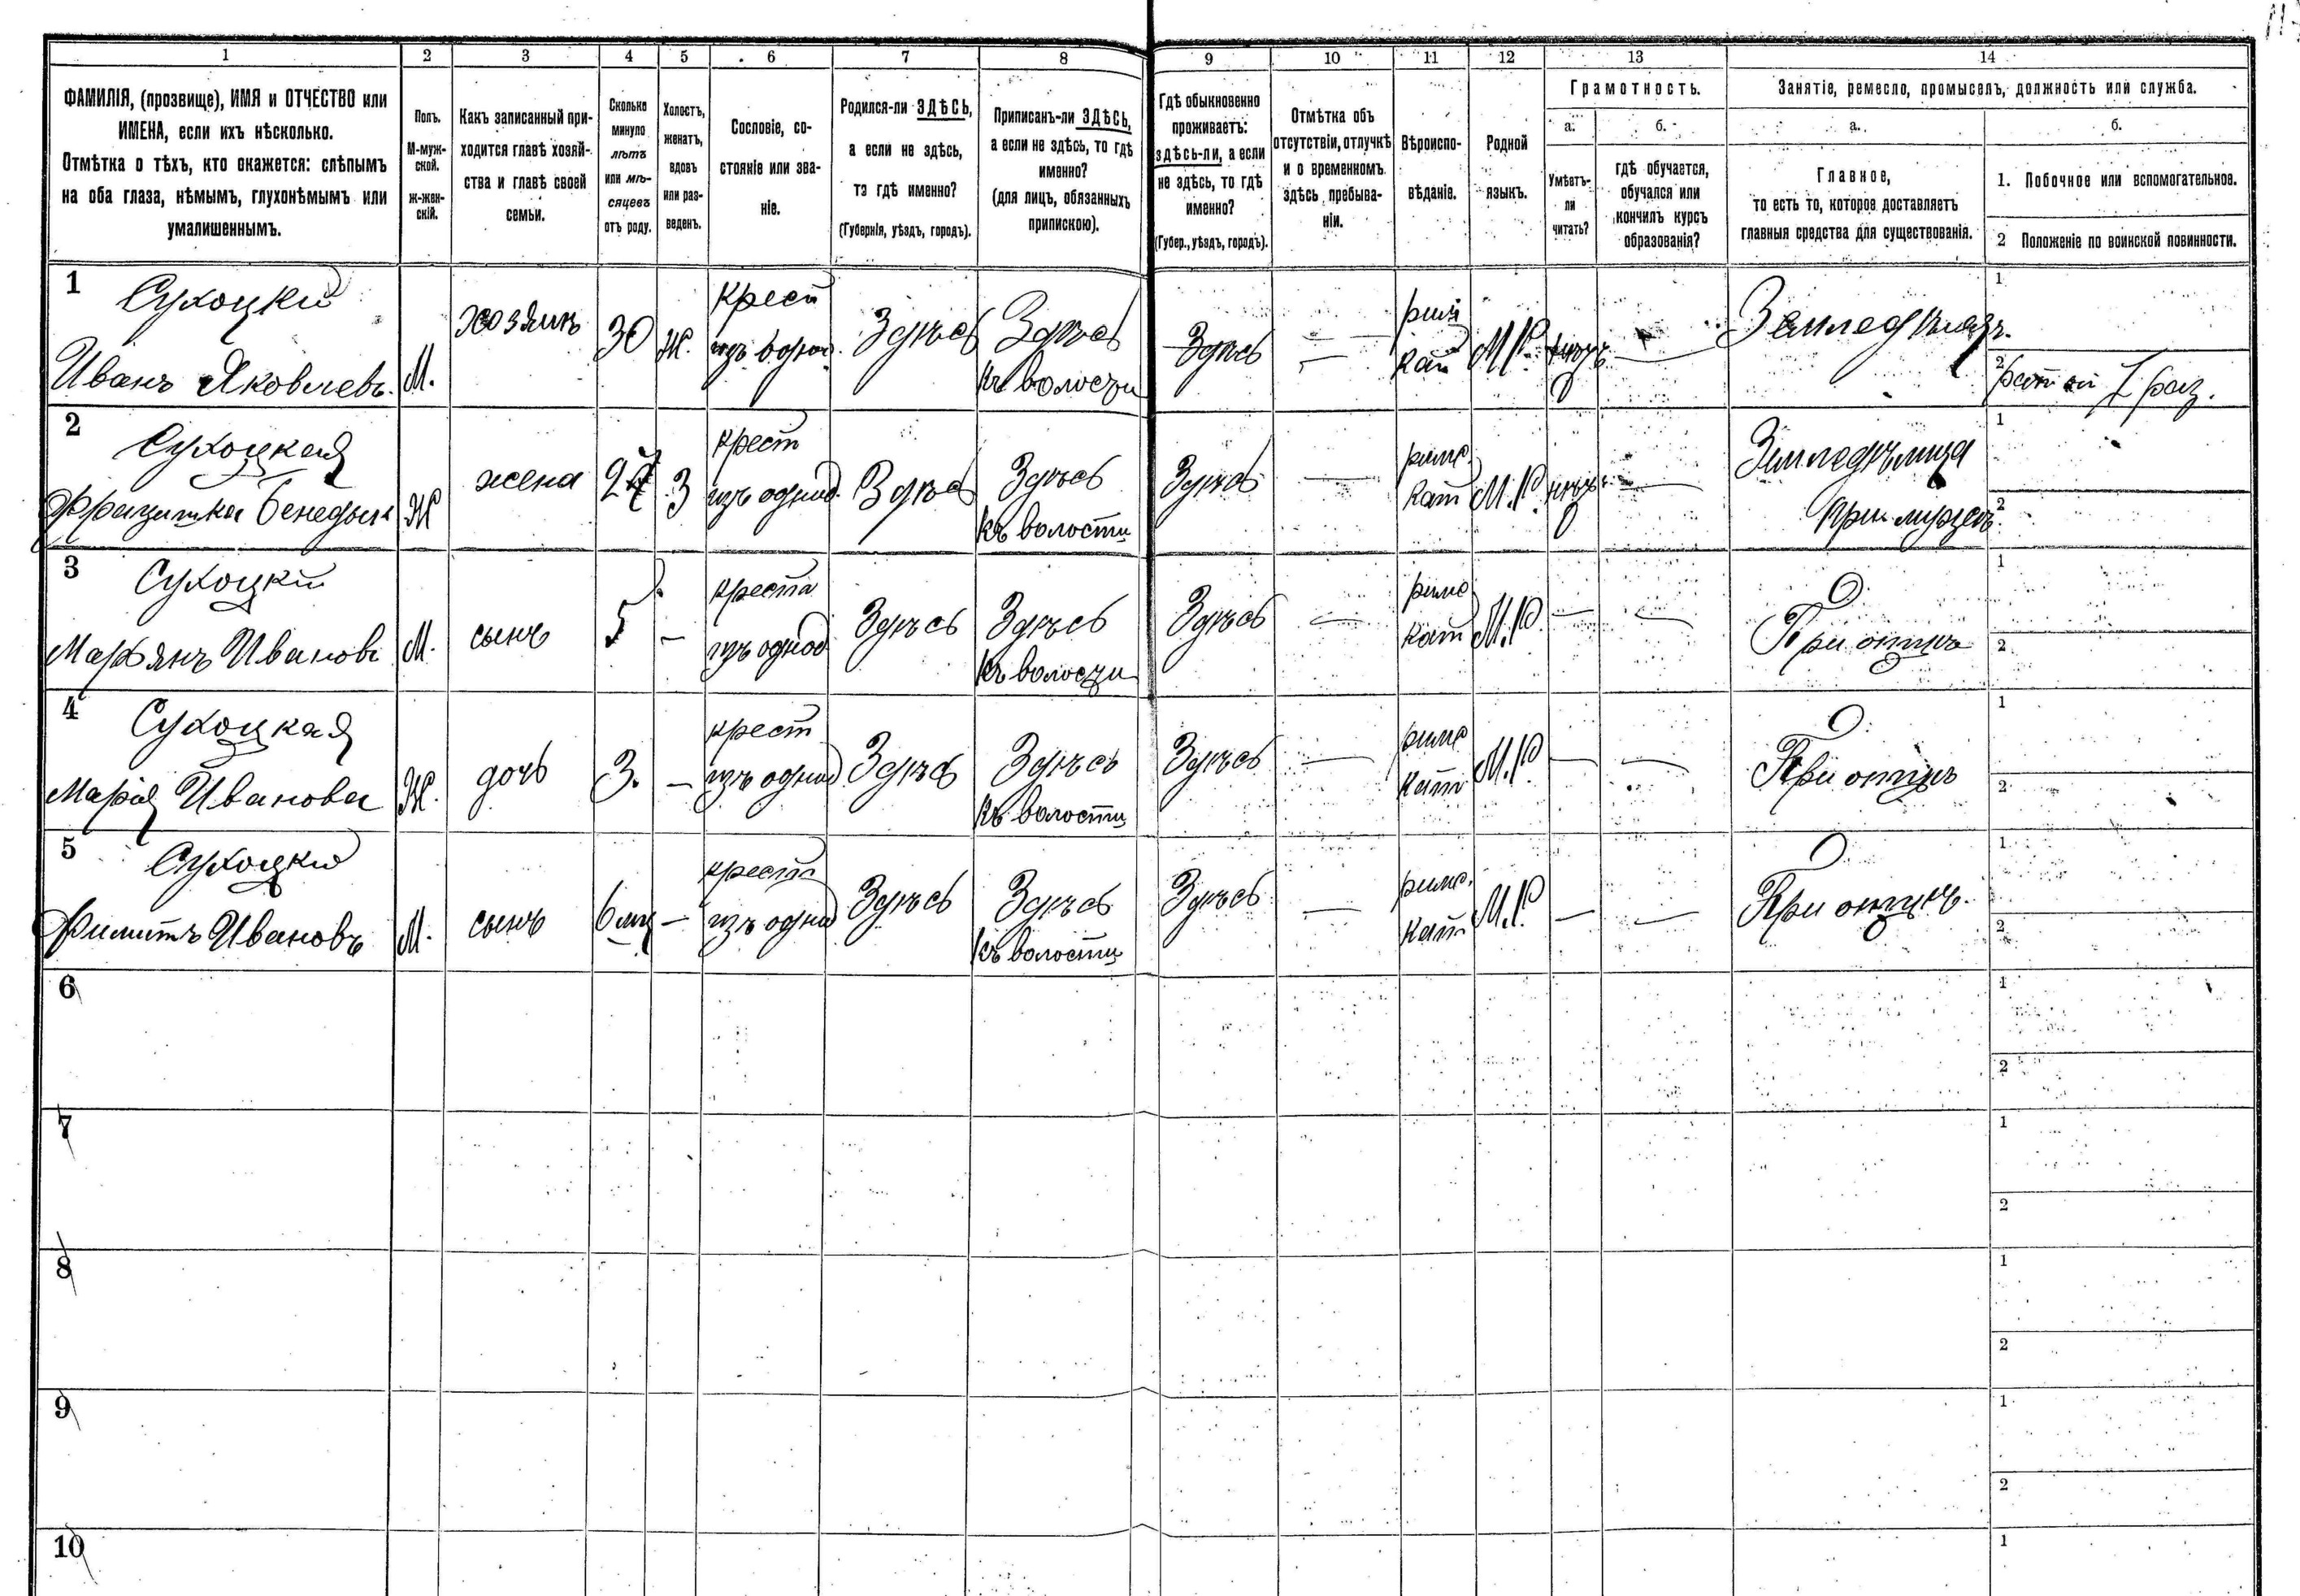 1 2 3 4 5 6 7 8 9 10 11 12 13 14
ФАМИЛІЯ, (прозвище), ИМЯ и ОТЧЕСТВО или
ИМЕНА, если ихъ нѣсколько.
Отмѣтка о тѣхъ, кто окажется: слѣпымъ
на оба глаза, нѣмымъ, глухонѣмымъ или
умалишеннымъ.
Полъ.
М-муж-
ской.
ж-жен-
скій.
Какъ записанный при-
ходится главѣ хозяй-
ства и главѣ своей
семьи.
Сколько
минуло
лѣтъ
или мѣ-
сяцевъ
отъ роду.
Холостъ,
женатъ,
вдовъ
или раз-
веденъ.
Сословіе, со-
стояніе или зва-
ніе.
Родился-ли ЗДѢСЬ,
а если не здѣсь,
то гдѣ именно?
(Губернія, уѣздъ, городъ).
Приписанъ-ли ЗДѢСЬ,
а если не здѣсь, то гдѣ
именно?
(для лицъ, обязанныхъ
припискою).
Гдѣ обыкновенно
проживаетъ:
здѣсь-ли, а если
не здѣсь, то гдѣ
именно?
(Губер., уѣздъ, городъ).
Отмѣтка объ
отсутствіи, отлучкѣ
и о временномъ
здѣсь пребыва-
ніи.
Вѣроиспо-
вѣданіе.
Родной
языкъ.
Грамотность.
а.
Умѣетъ-
ли
читать?
б.
гдѣ обучается,
обучался или
кончилъ курсъ
образованія?
Занятіе, ремесло, промыселъ, должность или служба.
а.
Главное,
то есть то, которое доставляетъ
главныя средства для существованія.
б.
1. Побочное или вспомогательное.
2 Положеніе по воинской повинности.
1 Сухоцкій
Иванъ Яковлевъ.
М.
хозяинъ
30
Ж.
крест
изъ
Здѣсь
Здѣсь
къ волости
Здѣсь
—
рим
кат
М.Р.
нѣтъ
—
Земледѣлецъ.
1
2
2 Сухоцкая
Ж
жена
3
крест
изъ однод
Здѣсь
Здѣсь
къ волости
Здѣсь
—
римс.
кат
М.Р.
нѣтъ
—
Земледѣлица
при мужѣ
1
2
3 Сухоцкій
Марьянъ Иванов
М.
сынъ
5
—
крест
изъ однод
Здѣсь
Здѣсь
къ волости
Здѣсь
—
римс
кат
М.Р.
—
—
При отцѣ
1
2
4 Сухоцкая
Марія Иванова
Ж.
дочь
3.
—
крест
изъ однод
Здѣсь
Здѣсь
къ волости
Здѣсь
—
римс
кат
М.Р.
—
—
При отцѣ
1
2
5 Сухоцкій
Ивановъ
М.
сынъ
6 мц
—
крест
изъ однод
Здѣсь
Здѣсь
къ волости
Здѣсь
—
римс.
кат
М.Р.
—
—
При отцѣ.
1
2
6
1
2
7
1
2
8
1
2
9
1
2
10
1